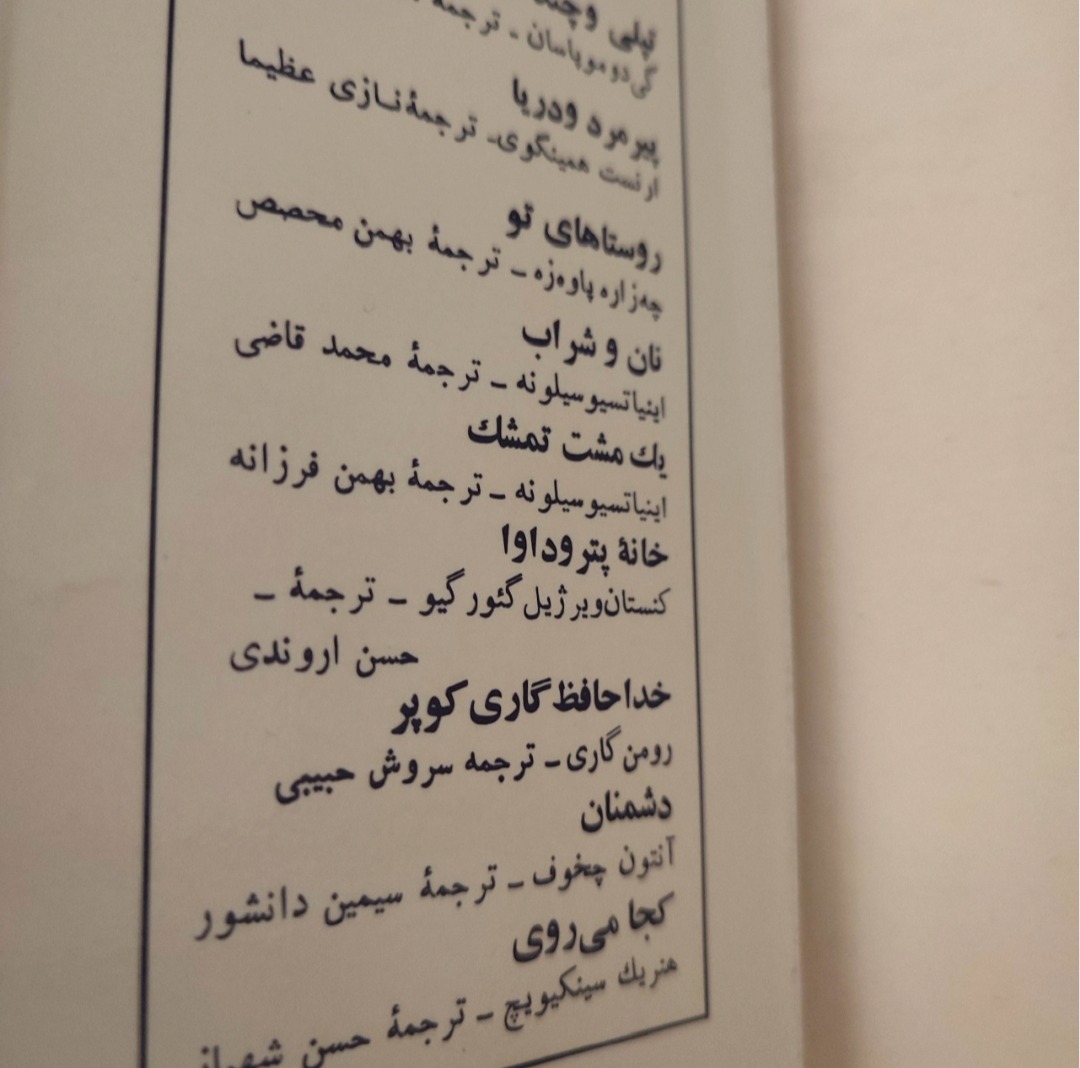 تپلی وچند
گی‌دوموپاسان ـ ترجمهٔ
پیرمرد ودریا
ارنست همینگوی ـ ترجمهٔ نازی عظیما
روستاهای تو
چه‌زاره پاوه‌زه ـ ترجمهٔ بهمن محصص
نان و شراب
اینیاتسیو سیلو نه ـ ترجمهٔ محمد قاضی
یك مشت تمشك
اینیاتسیو سیلو نه ـ ترجمهٔ بهمن فرزانه
خانهٔ پتروداوا
کنستان‌ویرژیل گئورگیو ـ ترجمهٔ ـ
حسن اروندی
خداحافظ گاری کوپر
رومن گاری ـ ترجمه سروش حبیبی
دشمنان
آنتون چخوف ـ ترجمهٔ سیمین دانشور
کجا می‌روی
هنریك سینکیویچ ـ ترجمهٔ حسن